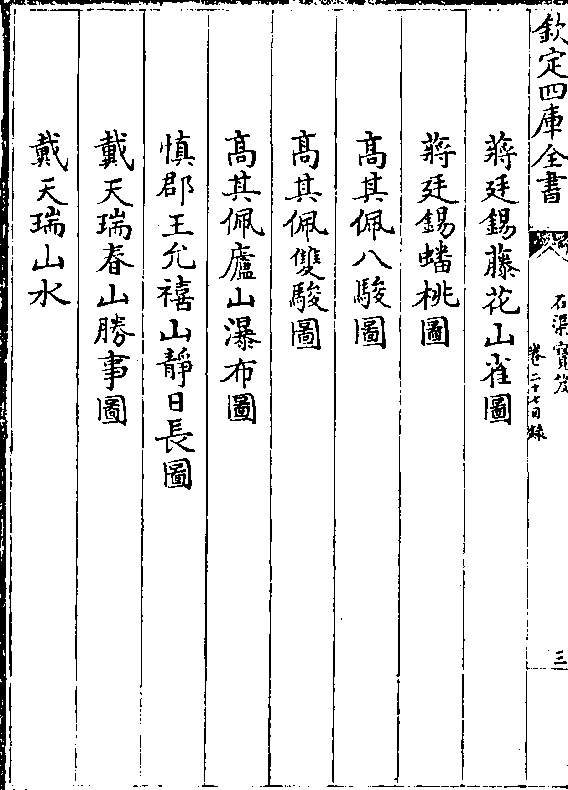 欽定四庫全書
石渠寳笈
卷二十七目録
三
蔣廷錫藤花山雀圖
蔣廷錫蟠桃圖
髙其佩八駿圖
髙其佩雙駿圖
髙其佩廬山瀑布圖
慎郡王允禧山靜日長圖
戴天瑞春山勝事圖
戴天瑞山水